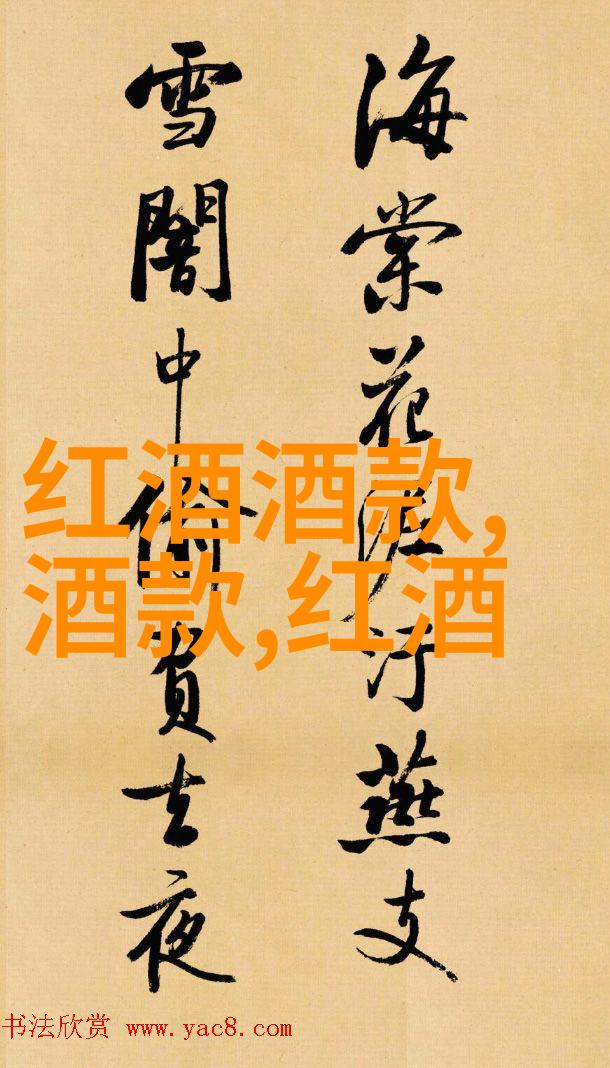 海棠花泥汙燕支
雪闇中偷負去夜
红酒酒款,
酒款,红酒
书法欣赏 www.yac8.com